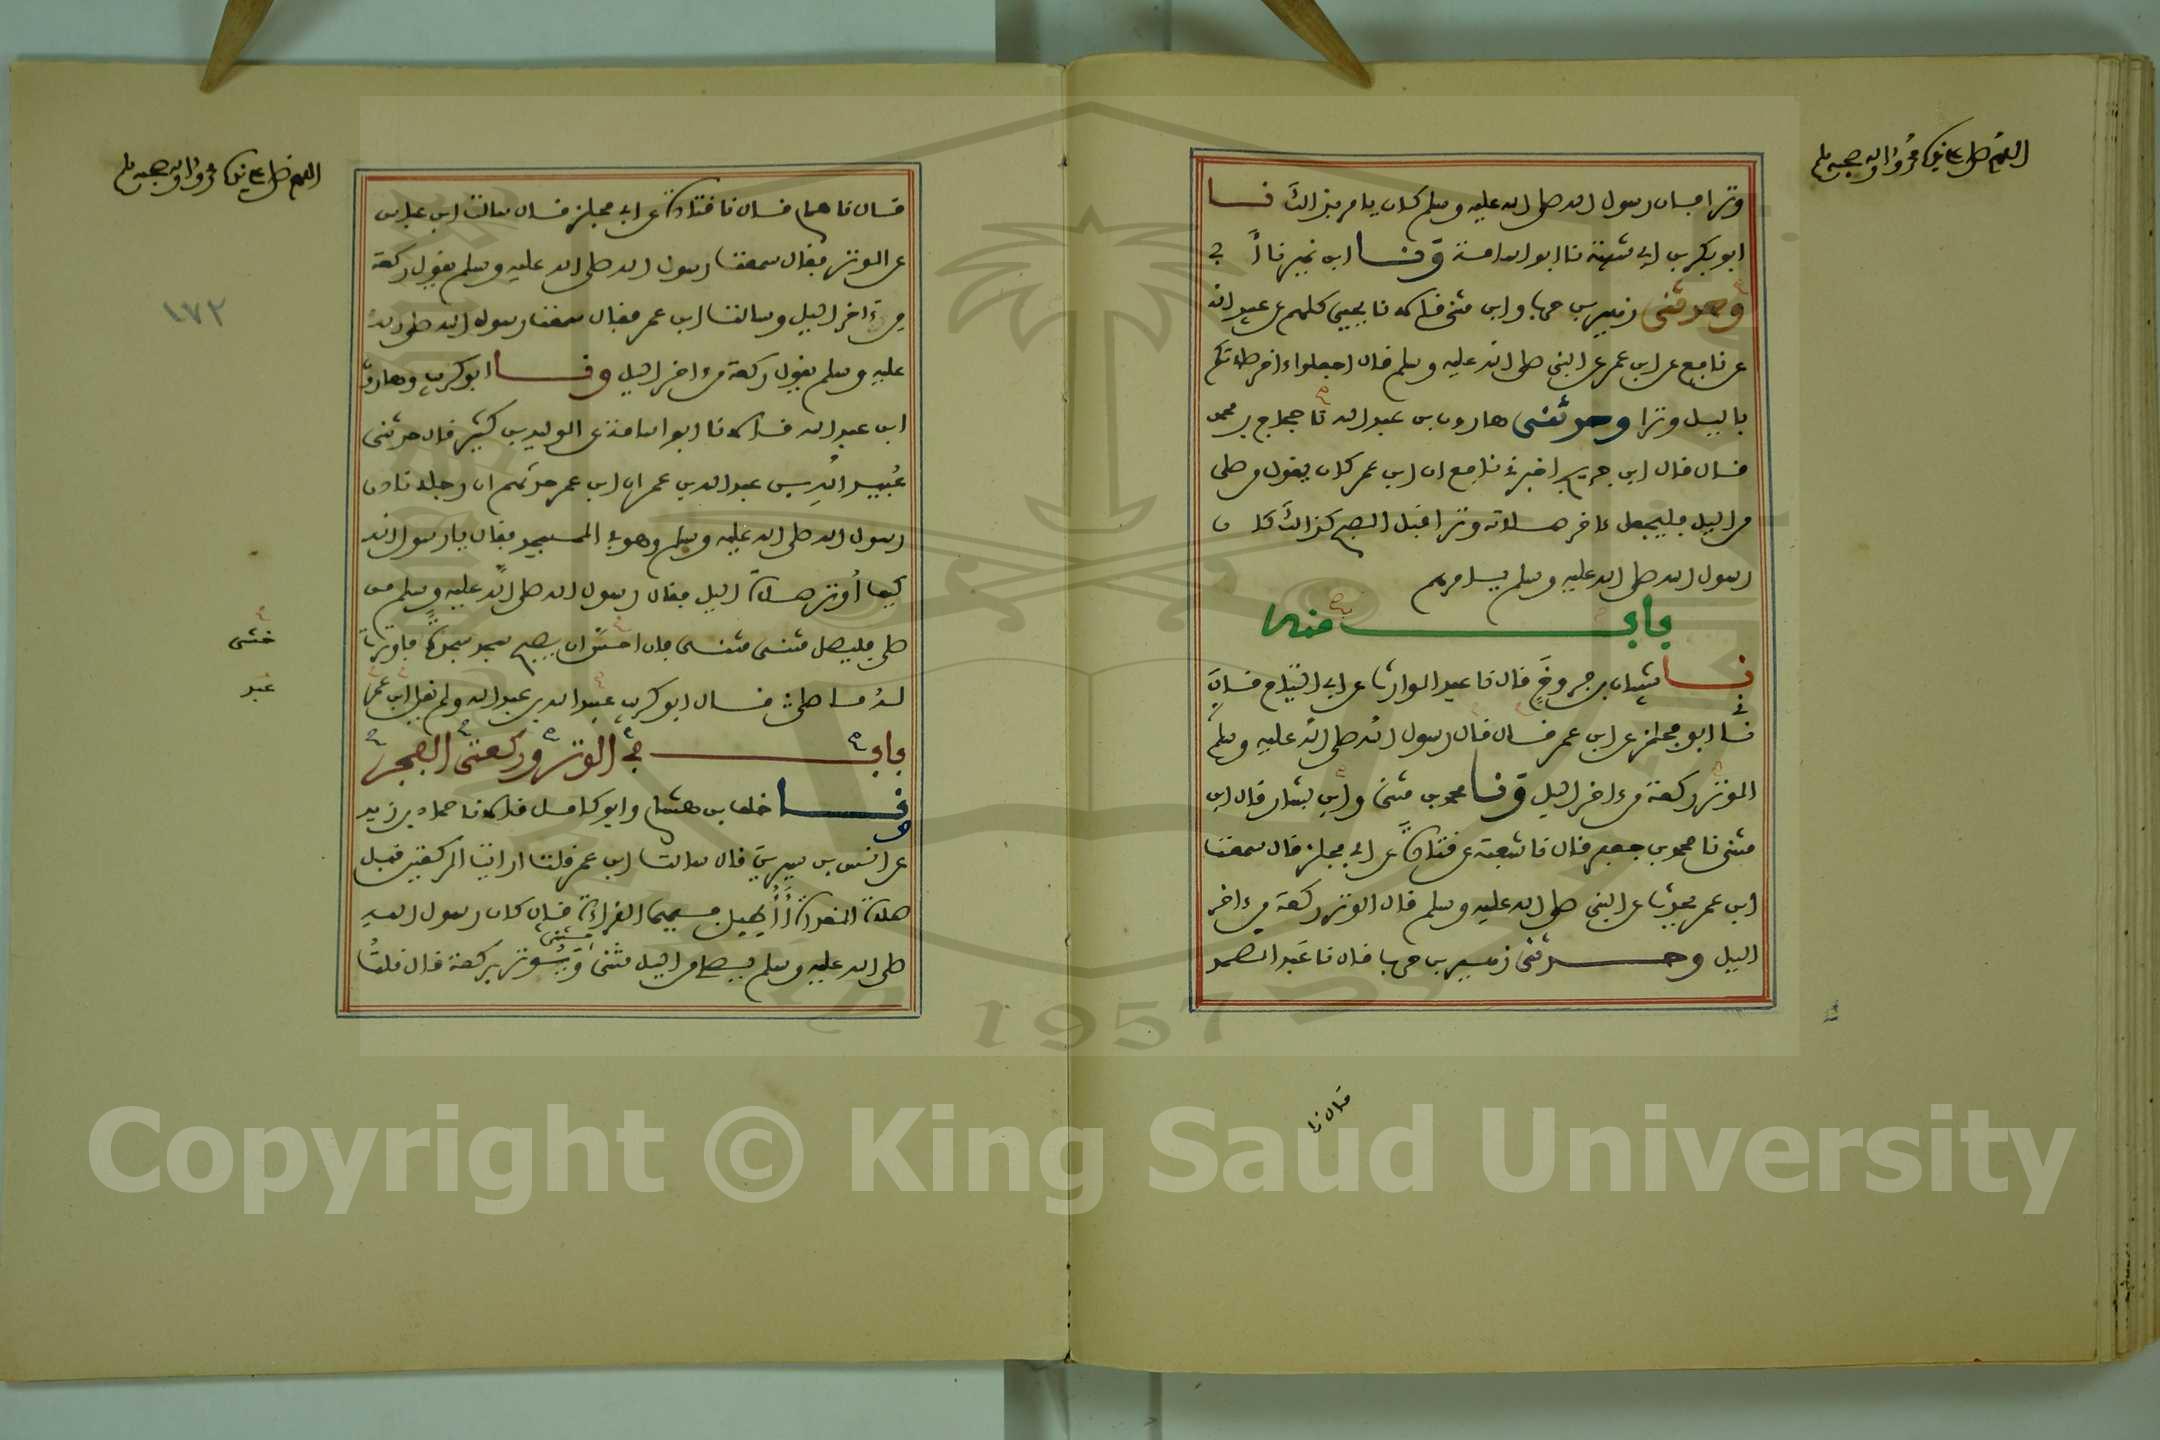 اللهم صل على سيدنا محمد وءاله وصحبه وسلم
وترا فان رسول الله صلى الله عليه وسلم كان يامر بذالك نا
ابو بكر بن ابي شيبة نا ابو اسامة ونا ابن نمير نا أبي
وحدثني زهير بن حرب وابن مثنى قالا نا يحيى كلهم عن عبيد الله
عن نافع عن ابن عمر عن النبي صلى الله عليه وسلم قال اجعلوا ءاخر صلاتكم
باليل وترا وحدثني هارون بن عبد الله نا حجاج بن محمد
قال قال ابن جريج اخبرني نافع ان ابن عمر كان يقول من صلى
من اليل فليجعل ءاخر صلاته وترا قبل الصبح كذالك كان
رسول الله صلى الله عليه وسلم يامرهم
باب منه
نا شيبان بن فروخ قال نا عبد الوارث عن ابي التياح قال
نا ابو مجلز عن ابن عمر قال قال رسول الله صلى الله عليه وسلم
الوتر ركعة من ءاخر اليل ونا محمد بن مثنى وابن بشار قال ابن
مثنى نا محمد بن جعفر قال نا شعبة عن قتادة عن ابي مجلز قال سمعت
ابن عمر يحدث عن النبي صلى الله عليه وسلم قال الوتر ركعة من ءاخر
اليل وحدثني زهير بن حرب قال نا عبد الصمد
قال نا
اللهم صل على سيدنا محمد وءاله وصحبه وسلم
١٧٢
قال نا همام قال نا قتادة عن ابي مجلز قال سالت ابن عباس
عن الوتر فقال سمعت رسول الله صلى الله عليه وسلم يقول ركعة
من ءاخر اليل وسالت ابن عمر فقال سمعت رسول الله صلى الله
عليه وسلم يقول ركعة من ءاخر اليل ونا ابو كريب وهارون
ابن عبد الله قالا نا ابو اسامة عن الوليد بن كثير قال حدثني
عبيد الله بن عبد الله بن عمر ان ابن عمر حدثهم ان رجلا نادى
رسول الله صلى الله عليه وسلم وهو في المسجد فقال يا رسول الله
كيف أوتر صلاة اليل فقال رسول الله صلى الله عليه وسلم من
صلى فليصل مثنى مثنى فان احس ان يصبح سجد سجدة فاوترت
له ما صلى قال ابو كريب عبيد الله بن عبد الله ولم يقل ابن عمر
خشي
عبد
باب في الوتر وركعتي الفجر
ونا خلف بن هشام وابو كامل قالا نا حماد بن زيد
عن انس بن سيرين قال سالت ابن عمر قلت ارايت الركعتين قبل
صلاة الغداة أأطيل فيهما القراءة قال كان رسول الله
صلى الله عليه وسلم يصلي من اليل مثنى مثنى ويوتر بركعة قال قلت
1957
Copyright © King Saud University